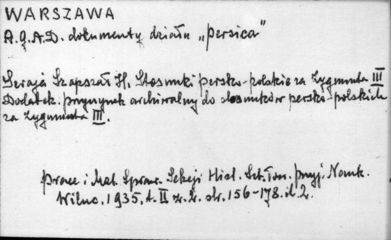 WARSZAWA
A.G.A.D. dokumenty działu „persica"
Seraja Szapszał H. Stosunki persko-polskie za Zygmunta III
Dodatek. przyczynek archiwalny do stosunków persko-polskich
za Zygmunta III.
Prace i Mat. Spraw. Sekcji Hist. Szt. Tow. Przyj. Nauk.
Wilno. 1935, t. II z. 2. str. 156-178. il 2.